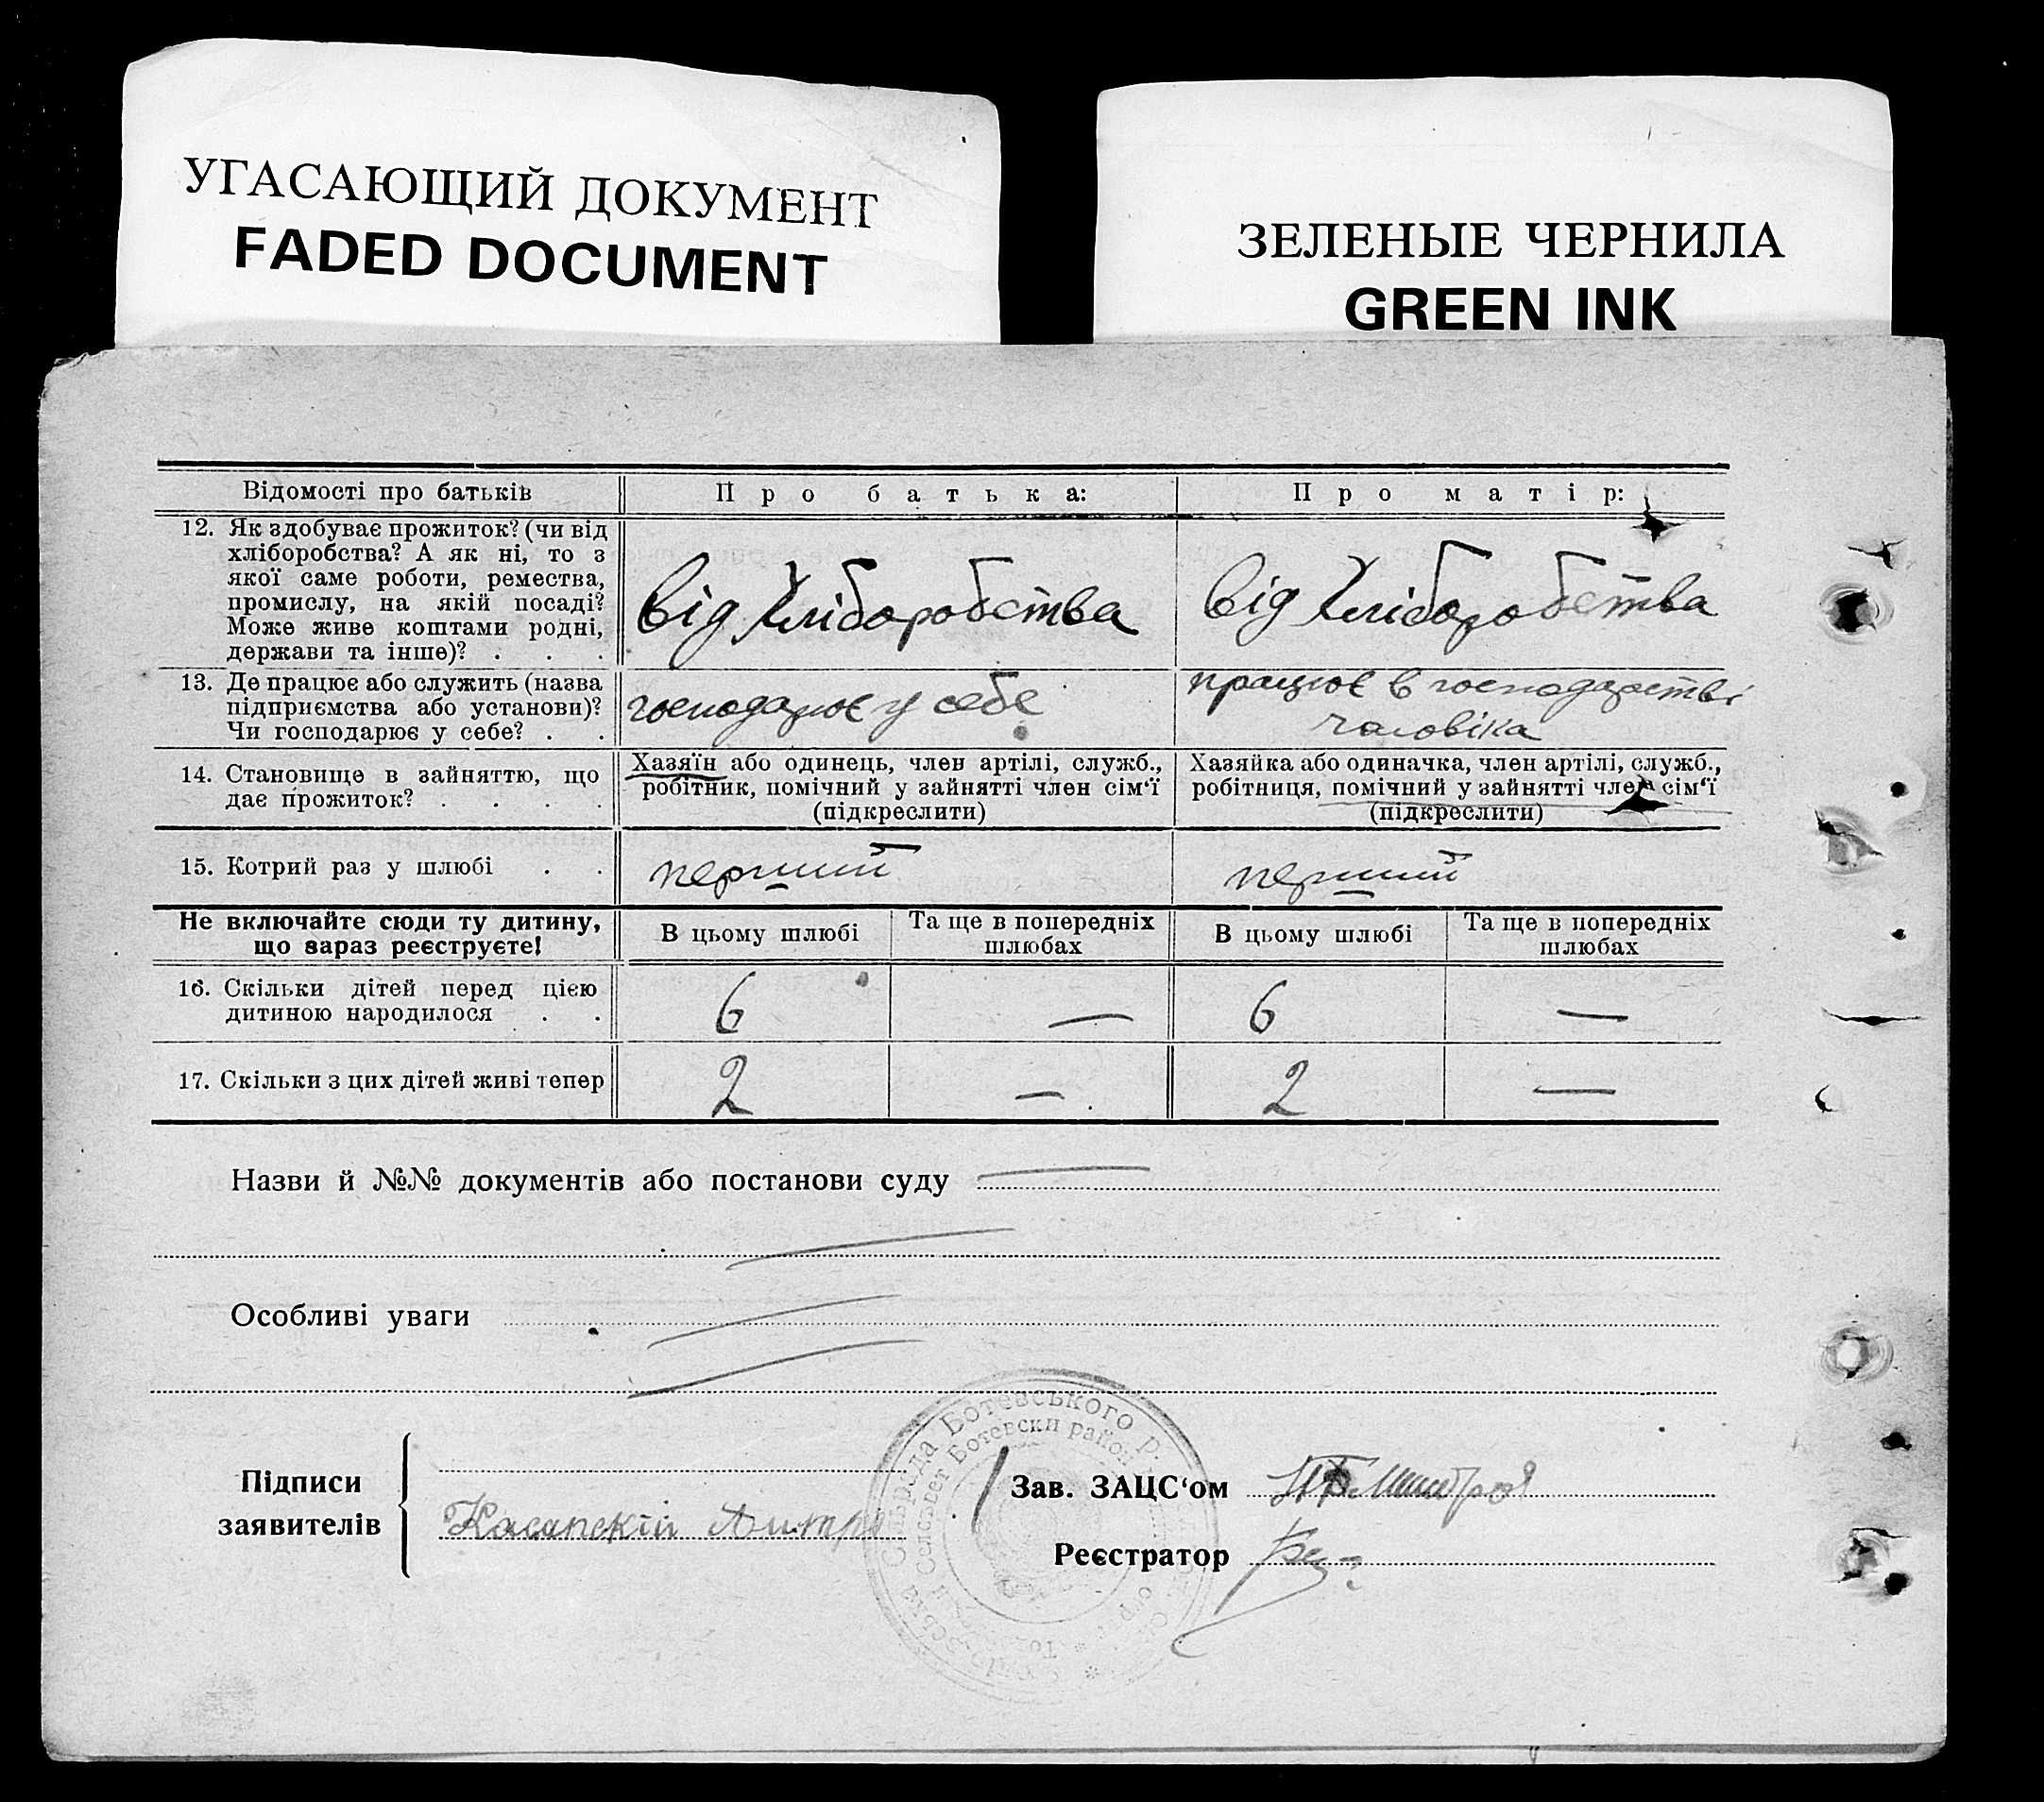 УГАСАЮЩИЙ ДОКУМЕНТ
FADED DOCUMENT
ЗЕЛЕНЫЕ ЧЕРНИЛА
GREEN INK
Відомості про батьків
Про батька:
Про матір:
12. Як здобуває прожиток? (чи від
хліборобства? А як ні, то з
якої саме роботи, ремества,
промислу, на якій посаді?
Може живе коштами родні,
держави та інше)? . . .
від Хліборобства
від Хліборобства
13. Де працює або служить (назва
підприємства або установи)?
Чи господарює у себе? . .
господарює у себе
працює в господарстві
чоловіка
14. Становище в зайняттю, що
дає прожиток? . . . .
Хазяїн або одинець, член артілі, служб.,
робітник, помічний у зайнятті член сім‘ї
(підкреслити)
Хазяйка або одиначка, член артілі, служб.,
робітниця, помічний у зайнятті член сім‘ї
(підкреслити)
15. Котрий раз у шлюбі . .
перший
перший
Не включайте сюди ту дитину,
що зараз реєструєте!
В цьому шлюбі
Та ще в попередніх
шлюбах
В цьому шлюбі
Та ще в попередніх
шлюбах
16. Скільки дітей перед цією
дитиною народилося . .
6
—
6
—
17. Скільки з цих дітей живі тепер
2
—
2
—
Назви й №№ документів або постанови суду
Особливі уваги
Підписи
заявителів
Касапскій
Зав. ЗАЦС‘ом
Реєстратор
Ботевського р.
Ботевски район